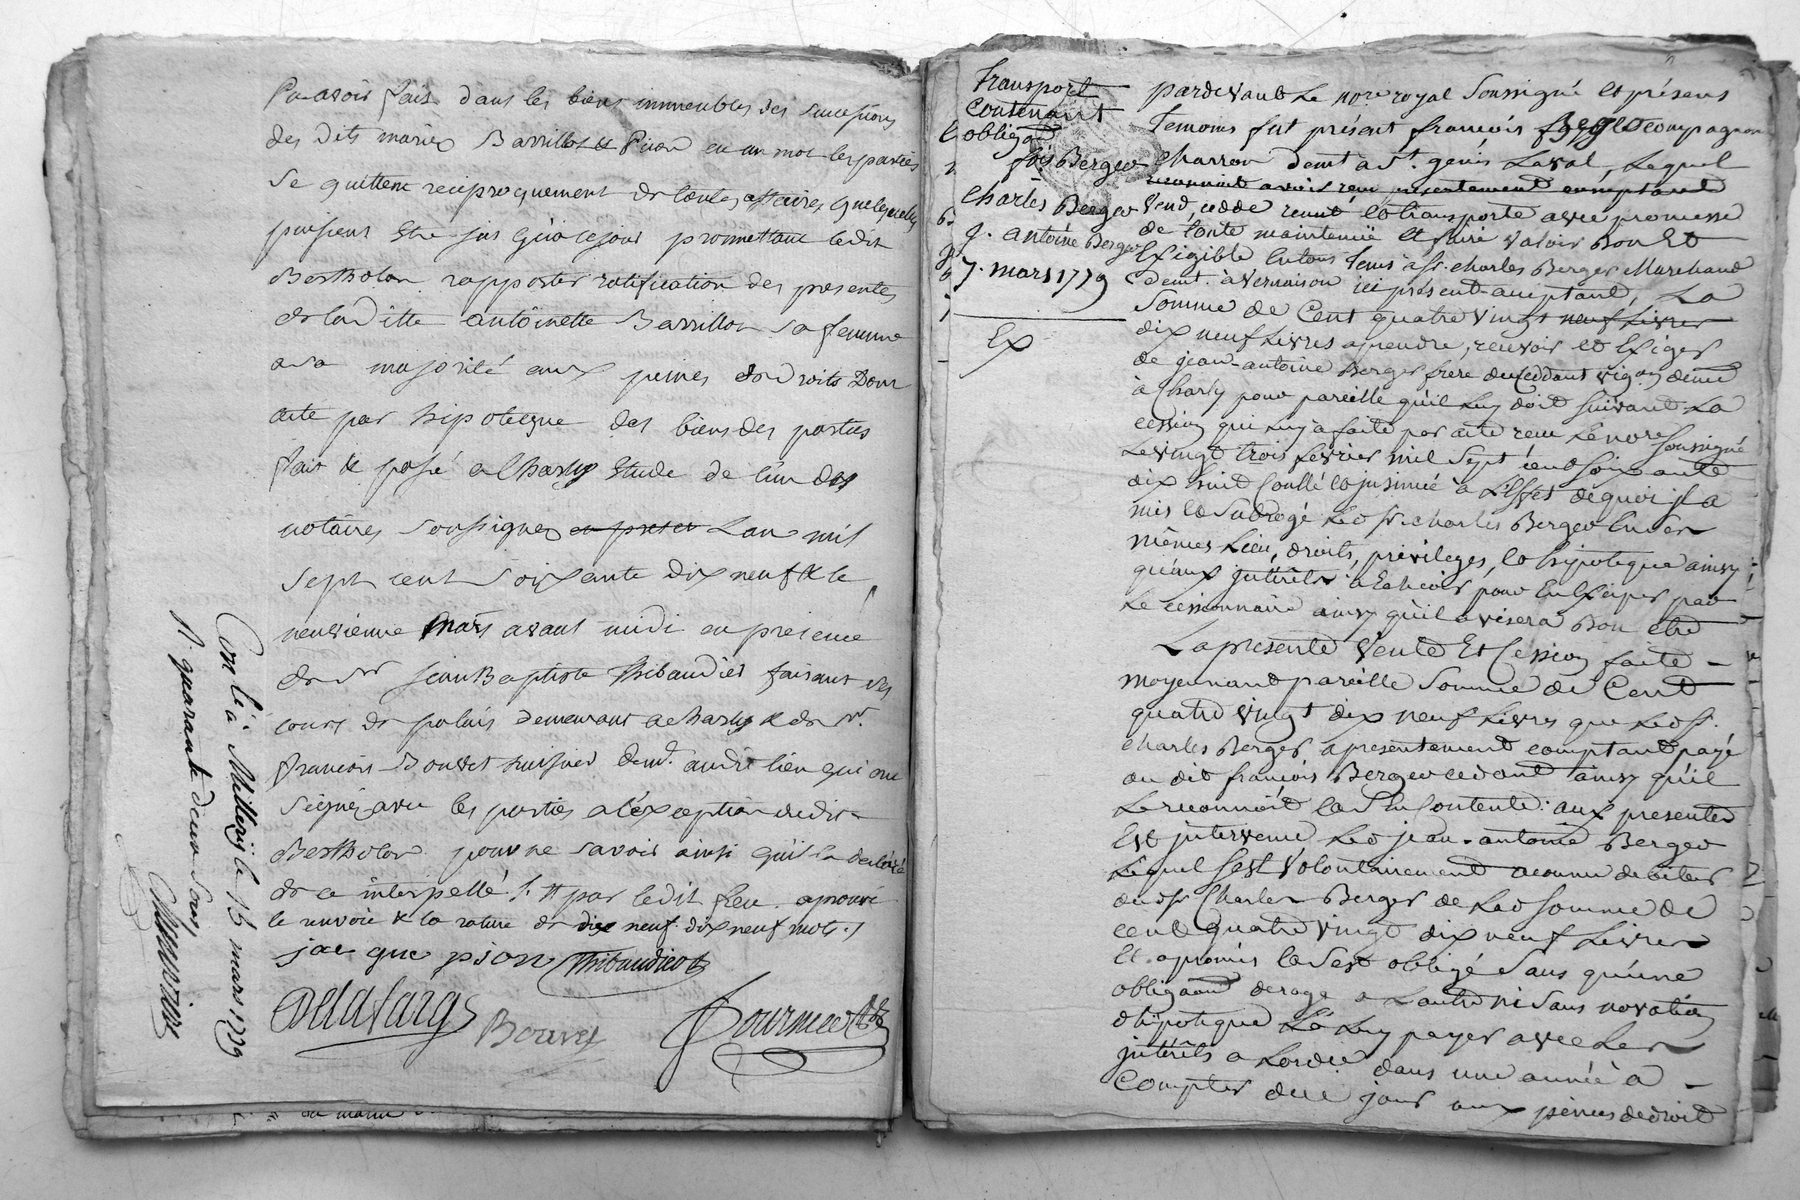 avoir fait dans les biens immeubles des successions
des dits mariés Barrillot & Pion en un mot les parties
se quittent reciproquement de toutes affaires quelconques
puissent être jusqu'à ce jour promettant ledit
Bertholon rapporter ratification des presentes
de laditte antoinette Barrillon sa femme
a sa majorité aux peines de droits Dont
acte par hipoteque des biens des parties
fait & passé a Charly Etude de l'un des
notaires soussignes en presen Lan mil
sept cent soixante dix neuf & le
neuvieme Mars avant midi en presence
de Sr Jean Baptiste Thibaudier faisant es
cours de palais demeurant a Charly & de Sr.
francois Bouvet huissier demt. audit lieu qui ont
Signé avec les parties a l'exception dudit
Bertholon pour ne savoir ainsi qu'il la declaré
de ce interpellé /. # par ledit feu. aprouvé
le renvoie & la rature de dix neuf dix neuf mots ./
jac que pion Thibaudier
Delafarge Bouvet fournier
Con lé a Millery le 15 mars 1779
R. quarante deux sous
Transport
Contenant
obligaon
fois Berger
Charles Berger
J. antoine Berger
7. mars 1779
Ex
pardevant Le nore royal Soussigné et présens
Temoins fut présent françois Berger compagnon
charron demt a St. genis Laval, Lequel
reconnoit avoir reçu presentement comptant
Vend, cedde remet et transporte avec promesse
de toute maintenüe et faire valoir Bon Et
Exigible En tous Tems a sr. charles Berger Marchand
demt. à Vernaison ici présent acceptant, La
Somme de Cent quatre vingt neuf Livres
dix neuf Livres a prendre, recevoir et Exiger
de jean-antoine Berger frere du Ceddant vigon demt
à Charly pour pareille qu'il Luy doit suivant La
cession qui luy a faite par acte reçu Le nore Soussigné
Le vingt trois février mil Sept cent soixante
dix huit Controllé et insinué a L'effet de quoi il a
mis et Subrogé Led sr. charles Berger En ses
mêmes Lieu, droits, privileges, et hipoteque ainsy
qu'aux interêts a Echeoir pour En Exciper par
Le cessionnaire ainsy qu'il avisera Bon etre
La presente Vente Et Cession faite
moyennant pareille Somme de Cent
quatre vingt dix neuf Livres que Led sr.
charles Berger a presentement comptant payé
au dit françois Berger cedant ainsy qu'il
Le reconnoit et s'en Contente: aux presentes
Est intervenu Led jean-antoine Berger
Lequel s'est Volontairement reconnu debiteur
dud sr Charles Berger de Lad somme de
cent quatre vingt dix neuf Livres
Et a promis et s'est obligé Sans qu'une
obligaon deroge a L'autre ni Sans novation
d'hipoteque de Luy payer avec Les
interêts a Lordre dans une année a
Compter de ce jour aux peines de droit